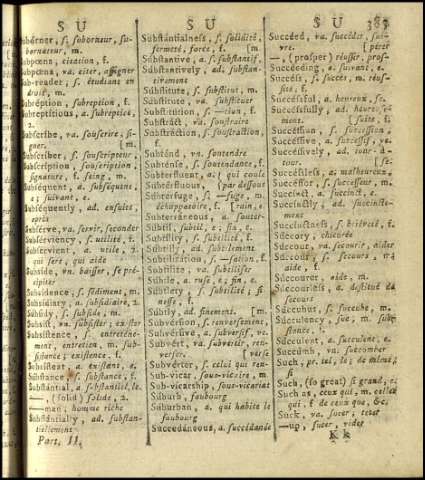 S U
Suborner, ſ. ſuborneur, ſu-
bornateur, m.
Subpœna, citation, f.
Subpœna, va. citer, aſſigner
Sub-reader, ſ. étudiant en
droit, m.
Subreption, ſubreption, f.
Subreptitious, a. ſubreptice,
2.
Subſcribe, va. ſouſcrire, ſi-
gner. [m.
Subſcriber, ſ. ſouſcripteur,
Subſcription, ſouſcription,
ſignature, f. ſeing, m.
Subſequent, a. ſubſéquent,
e; ſuivant, e.
Subſequently, ad. enſuite
Subſerve, va. ſervir, ſeconder
Subſerviency, ſ. utilité, f.
Subſervient, a. utile, 2.
qui ſert, qui aide
Subſide, vn. baiſſer, ſe pré-
cipiter
Subſidence, ſ. ſédiment, m.
Subſidiary, a. ſubſidiaire, 2.
Subſidy, ſ. ſubſide, m.
Subſiſt, va. ſubſiſter; exiſter
Subſiſtence, ſ. entretène-
ment, entretien, m. ſub-
ſiſtance; exiſtence, f.
Subſiſtent, a. exiſtant, e.
Subſtance, ſ. ſubſtance, f.
Subſtantial, a. ſubſtantiel, le
—, (ſolid) ſolide, 2.
—man, homme riche
Subſtantially, ad. ſubſtan-
tiellement
Part. II.
S U
Subſtantialneſs, ſ. ſolidité,
fermeté, force, f. [m.
Subſtantive, a. ſ. ſubſtantif,
Subſtantively, ad. ſubſtan-
tivement
Subſtitute, ſ. ſubſtitut, m.
Subſtitute, va. ſubſtituer
Subſtitution, ſ. —ction, f.
Subſtract, va. ſouſtraire
Subſtraction, ſ. ſouſtraction,
f.
Subtend, va. ſoutendre
Subtenſe, ſ. ſoutendante, f.
Subterfluent, a. { qui coule
Subterfluous, { par deſſous
Subterfuge, ſ. —fuge, m.
échappatoire, f. [rain, e.
Subterraneous, a. ſouter-
Subtil, ſubtil, e; fin, e.
Subtilty, ſ. ſubtilité, f.
Subtilly, ad. ſubtilement
Subtilization, ſ. —ſation, f.
Subtilize, va. ſubtiliſer
Subtle, a. ruſé, e; fin, e.
Subtlety, ſ. ſubtilité; fi-
neſſe, f.
Subtly, ad. finement. [m.
Subverſion, ſ. renverſement,
Subverſive, a. ſubverſif, ve.
Subvert, va. ſubvertir, ren-
verſer. [verſe
Subverter, ſ. celui qui ren-
Sub-vicar, ſous-vicaire, m.
Sub-vicarſhip, ſous-vicariat
Suburb, faubourg
Suburban, a. qui habite le
faubourg
Succedaneous, a. ſuccédanée
S U 383
Succeed, va. ſuccéder, ſui-
vre. [pérer
—, (proſper) réuſſir, proſ-
Succeeding, a. ſuivant, e.
Succeſs, ſ. ſuccès, m. réuſ-
ſite, f.
Succeſsful, a. heureux, ſe.
Succeſsfully, ad. heureuſe-
ment. [ſuite, f.
Succeſſion, ſ. ſucceſſion,
Succeſſive, a. ſucceſſif, ve.
Succeſſively, ad. tour à
tour. [ſe.
Succeſsleſs, a. malheureux,
Succeſſor, ſ. ſucceſſeur, m.
Succinct, a. ſuccinct, e.
Succinctly, ad. ſuccincte-
ment
Succinctneſs, ſ. briéveté, f.
Succory, chicorée
Succour, va. ſecourir, aider
Succour, ſ. ſecours, m.
aide, f.
Succourer, aide, m.
Succourleſs, a. deſtitué de
ſecours
Succubus, ſ. ſuccube, m.
Succulency, ſuc, m. ſubſ-
tance, f.
Succulent, a. ſucculent, e.
Succumb, va. ſuccomber
Such, pr. tel, le; de même,
ſi
Such, (ſo great) ſi grand, e.
Such as, ceux qui, m. celles
qui, f. de ceux que, &c.
Suck, va. ſucer, teter
—up, ſucer, vider
K k